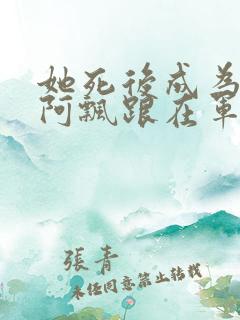 她死後成為
阿飄跟在軍
張青
未經同意禁止轉載